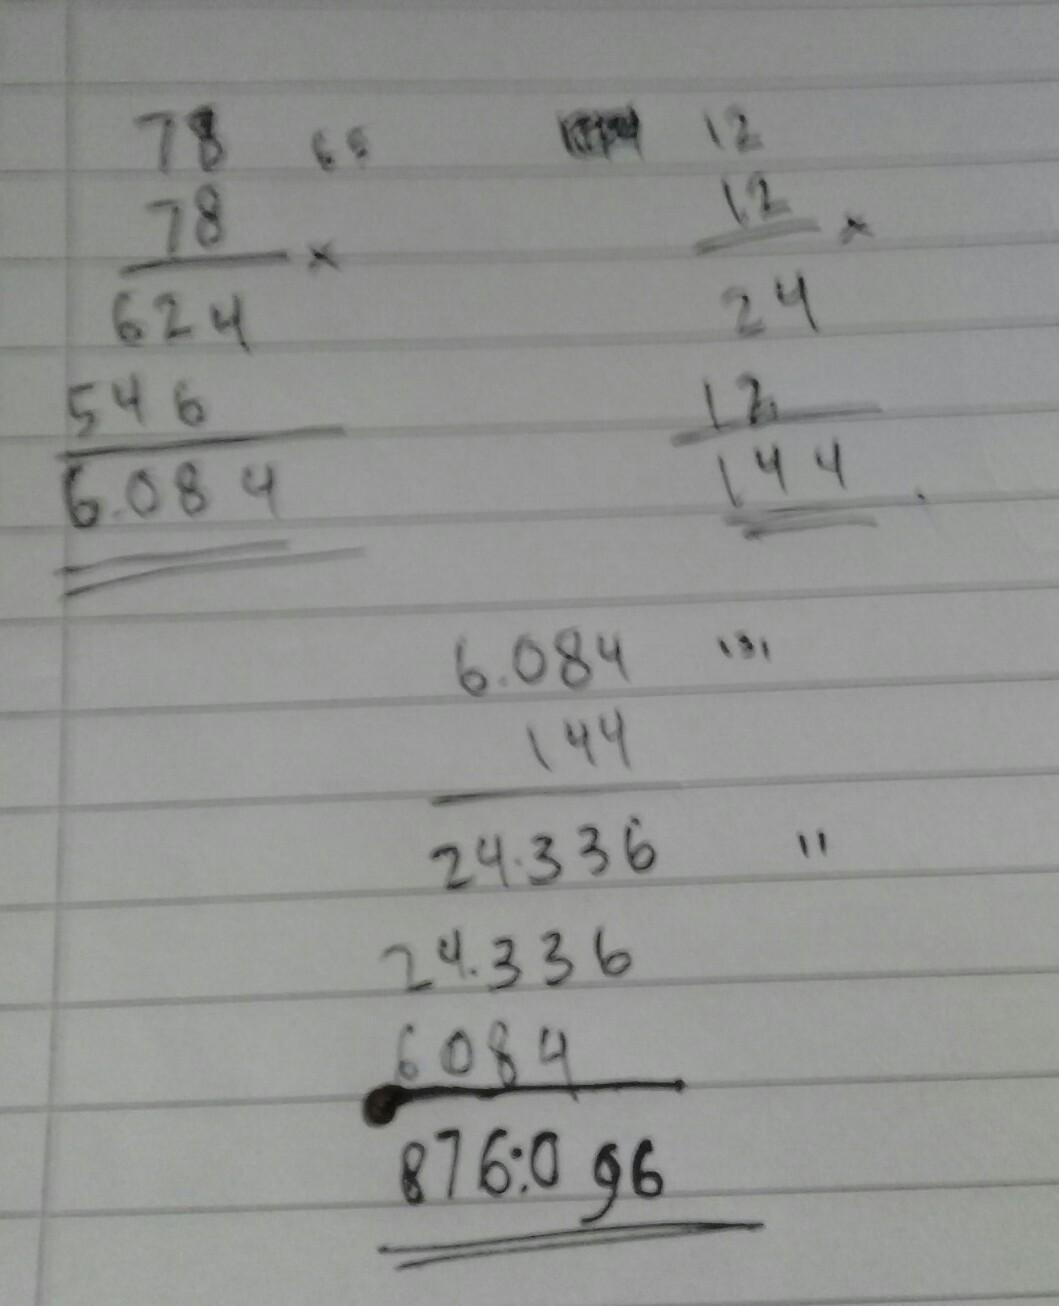 78
78
x
624
546
6.084
12
12
x
24
12
144
6.084
144
24.336
24.336
6084
876.096